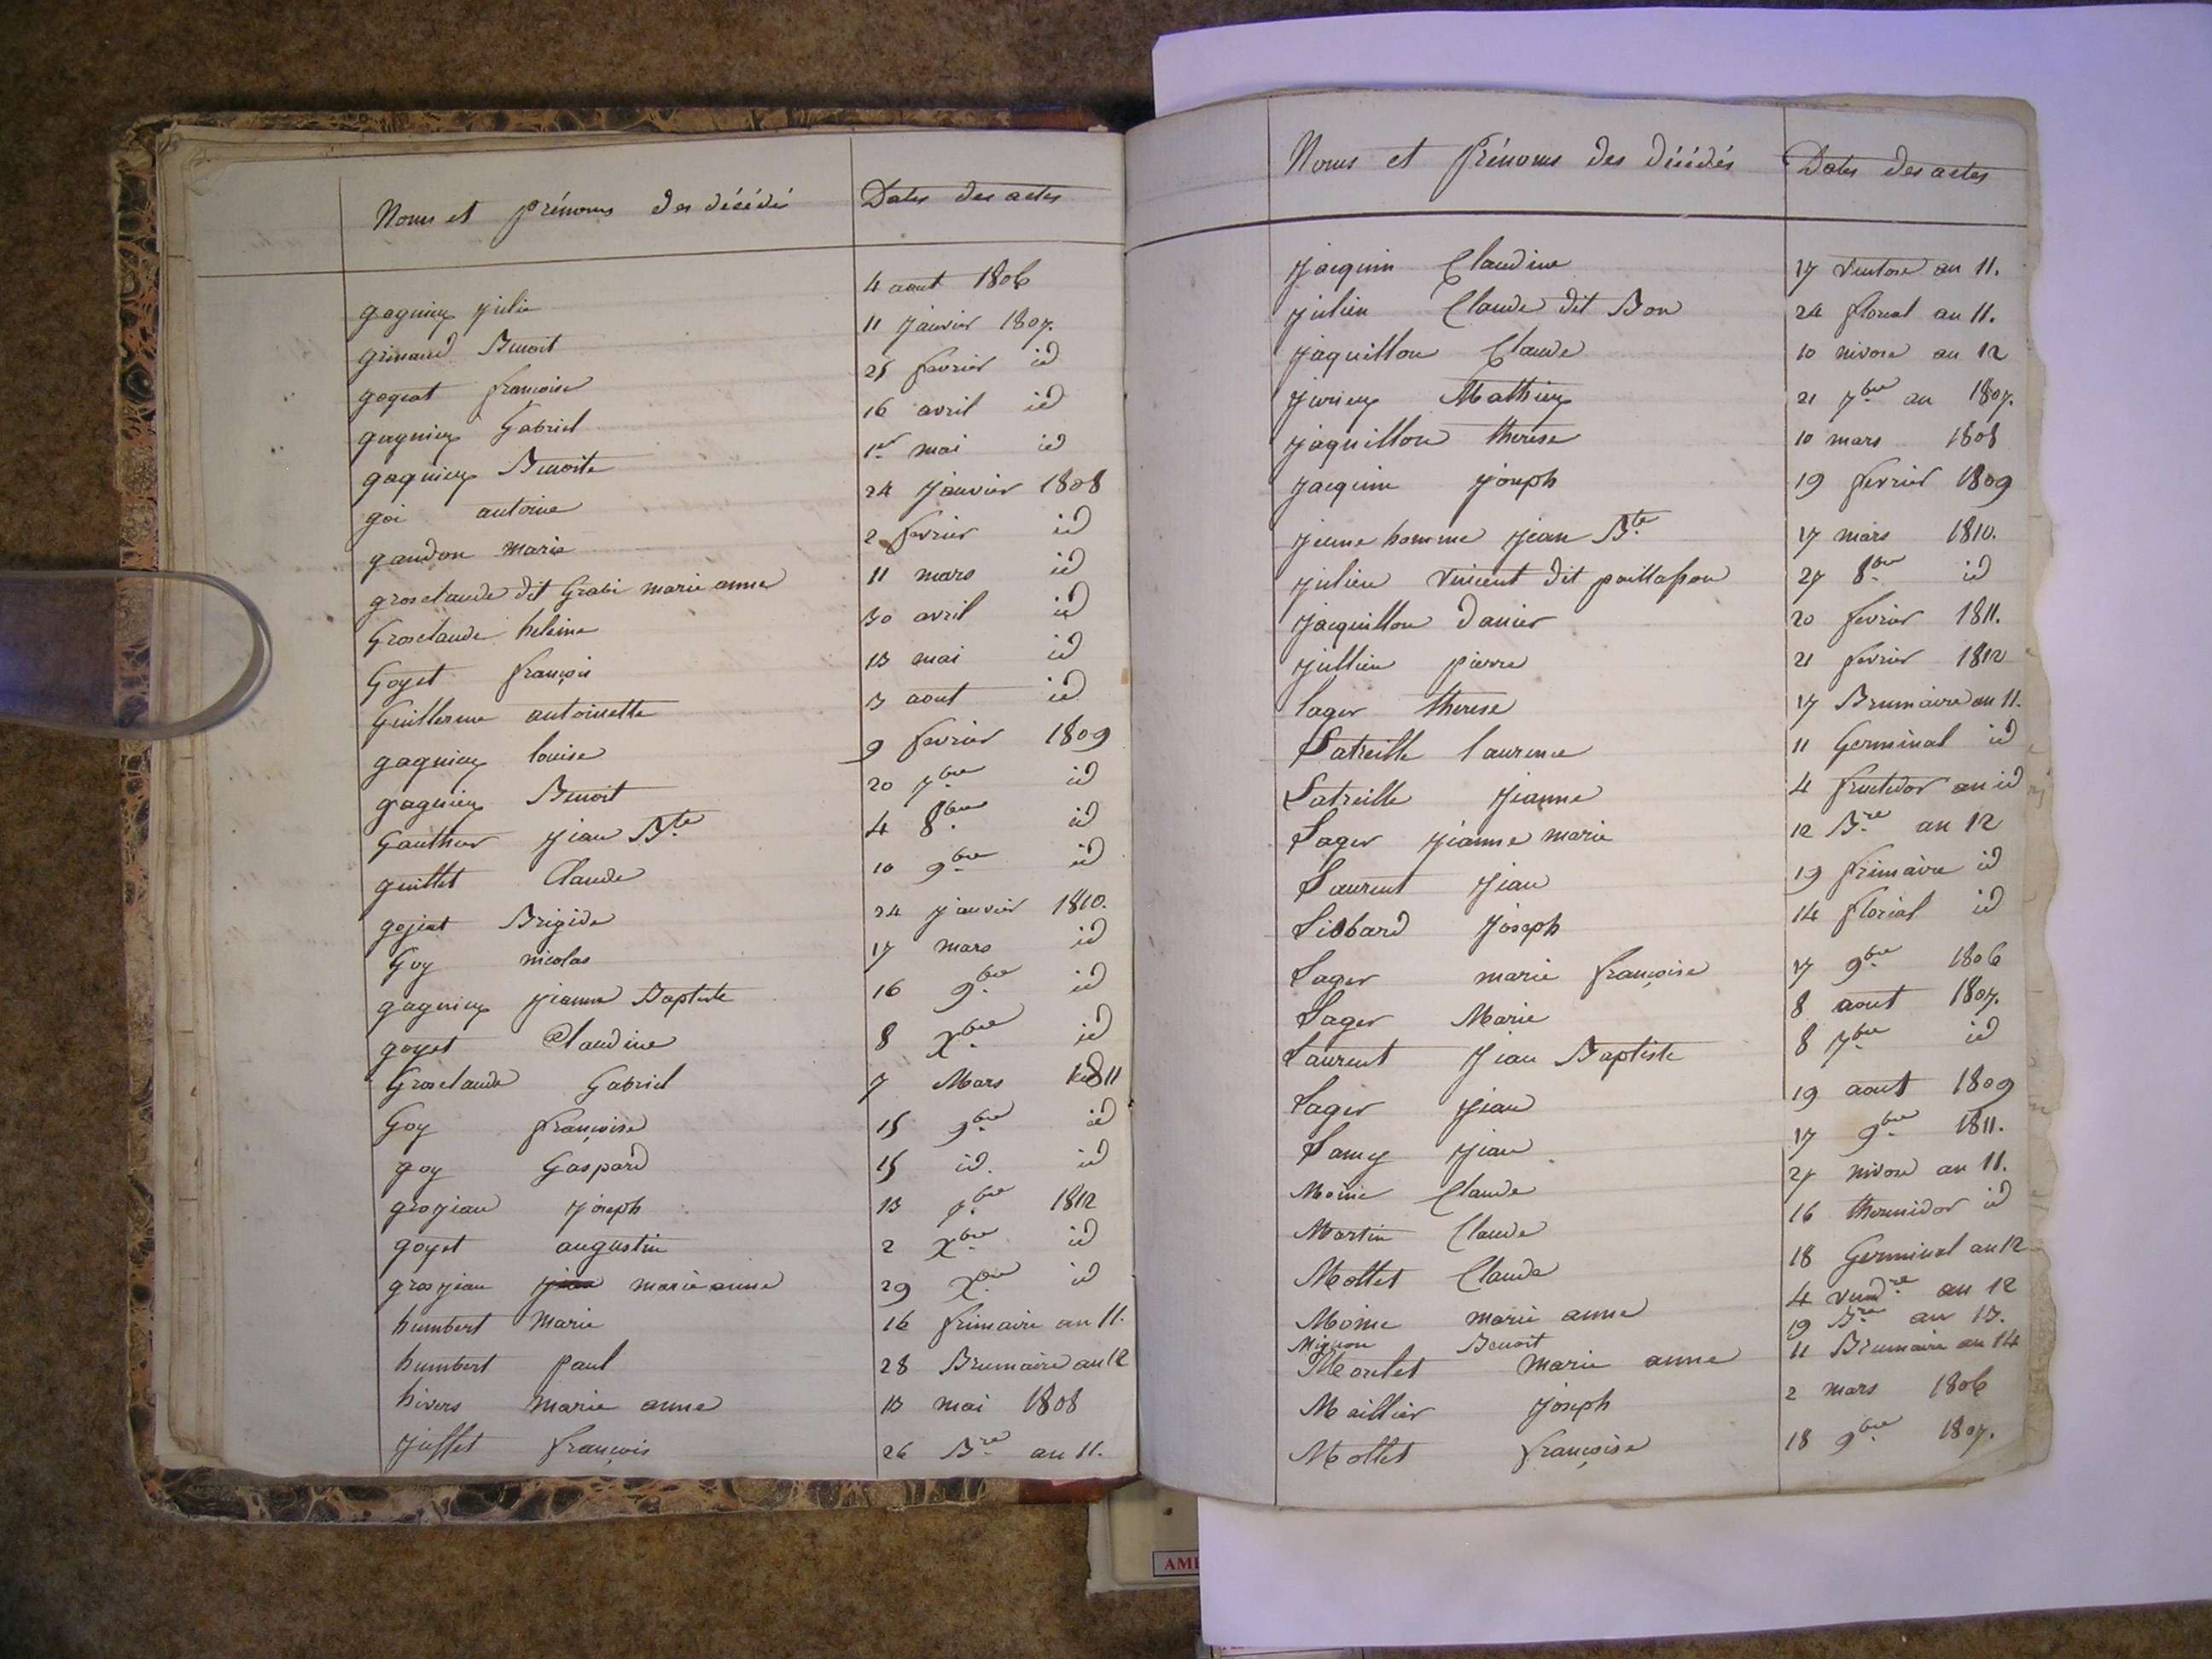 Noms et prénoms des décédés Dates des actes
gagnieux julie 4 aout 1806
grimaud Benoit 11 janvier 1807.
gogeat françoise 25 fevrier id
gagnieux Gabriel 16 avril id
gagnieux Benoite 1er mai id
goi antoine 24 janvier 1808
gaudon marie 2 fevrier id
grosclaude dit Grabi marie anne 11 mars id
Grosclaude heleine 30 avril id
Goyet françois 13 mai id
Guillerme antoinette 3 aout id
gagnieux louise 9 fevrier 1809
gagnieux Benoit 20 7bre id
Gauthier jean Bte 4 8bre id
guillet Claude 10 9bre id
gojeat Brigide 24 janvier 1810.
Goy nicolas 17 mars id
gagnieux jeanne Baptiste 16 9bre id
goyet Claudine 8 Xbre id
Grosclaude Gabriel 7 Mars 1811
Goy françoise 15 9bre id
goy Gaspard 15 id. id
grosjean joseph 13 7bre 1812
goyet augustin 2 Xbre id
grosjean marie anne 29 Xbre id
humbert Marie 16 frimaire an 11.
humbert paul 28 Brumaire an 12
hivers marie anne 13 mai 1808
juffet françois 26 Bre an 11.
Noms et Prénoms des décédés Dates des actes
jacquin Claudine 17 ventose an 11.
julien Claude dit Bon 24 floreal an 11.
jaquillon Claude 10 nivose an 12
jurieux Mathieu 21 7bre an 1807.
jaquillon therese 10 mars 1808
jacquin joseph 19 fevrier 1809
jeune homme jean Bte 17 mars 1810.
julien vincent dit paillasson 27 8bre id
jacquillon danier 20 fevrier 1811.
jullien pierre 21 fevrier 1812
lager therese 17 Brumaire an 11.
Latreille laurence 11 Germinal id
Latreille jeanne 4 fructidor an id
Lager jeanne marie 12 Bre an 12
Laurent jean 19 frimaire id
Liobard joseph 14 floreal id
Lager marie françoise 17 9bre 1806
Lager Marie 8 aout 1807.
Laurent jean Baptiste 8 7bre id
Lager jean 19 aout 1809
Lamy jean 17 9bre 1811.
Moine Claude 27 nivose an 11.
Martin Claude 16 thermidor id
Mollet Claude 18 Germinal an 12
Moine marie anne 4 vendre an 12
Mignon Benoit 19 Bre an 13.
Moulet marie anne 11 Brumaire an 14
Maillier joseph 2 mars 1806
Mollet françoise 18 9bre 1807.
AM